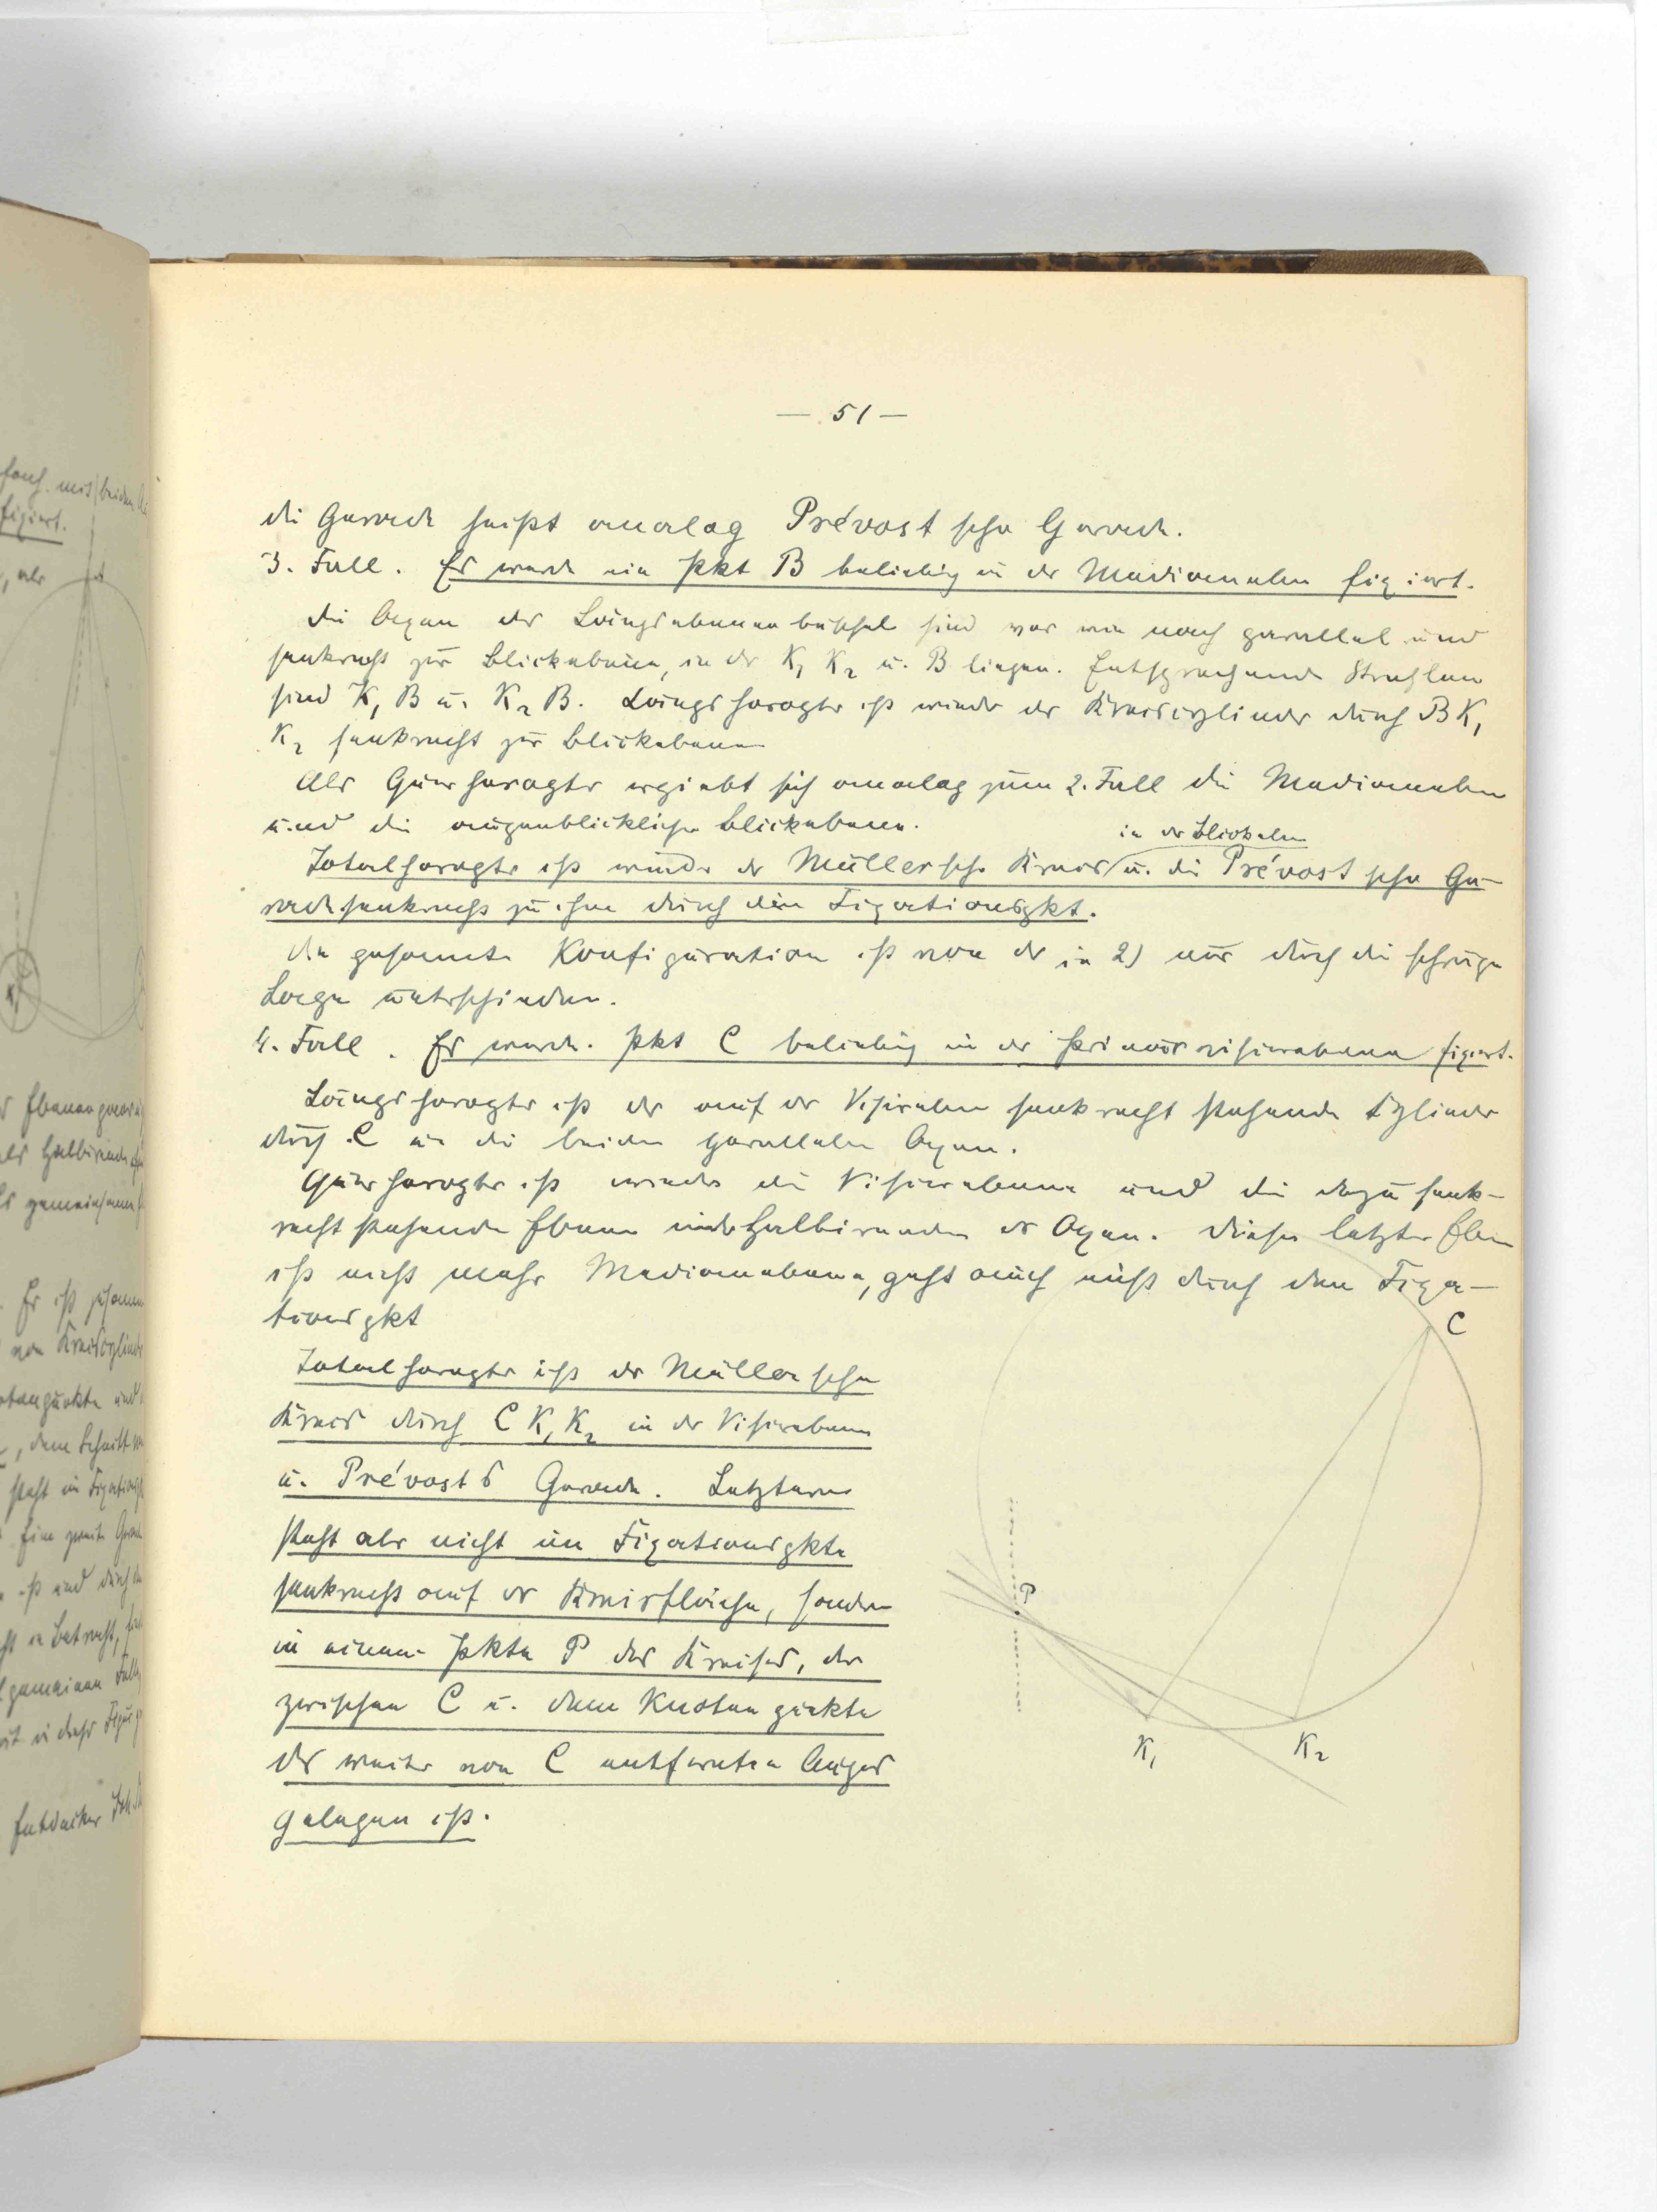 — 51 —
die Gerade heißt analog Prévost'sche Gerade.
3. Fall. Es werde ein Pkt B beliebig in der Medianebene fixiert.
Die Axen der Längsebenenbüschel sind vor wie nach parallel und
senkrecht zur Blickebene, in der K₁ K₂ u. B liegen. Entsprechende Strahlen
sind K₁ B u. K₂ B. Längshoropter ist wieder der Kreiscylinder durch B K₁
K₂ senkrecht zur Blickebene
Als Querhoropter ergiebt sich analog zum 2. Fall die Medianebene
und die augenblickliche Blickebene.
in der Blickebene
Totalhoropter ist wieder der Müllersche Kreis u. die Prévost'sche Ge-
rade senkrecht zu ihm durch den Fixationspkt.
Die gesamte Konfiguration ist von der in 2) nur durch die schräge
Lage unterschieden.
4. Fall. Es werde Pkt C beliebig in der Primärvisierebene fixiert.
Längshoropter ist der auf der Visierebene senkrecht stehende Cylinder
durch C u. die beiden parallelen Axen.
Querhoropter ist wieder die Visierebene und die dazu senk-
recht stehende Ebene der Axen. Diese letztere Ebene
ist nicht mehr Medianebene, geht auch nicht durch den Fixa-
tionspkt
Totalhoropter ist der Müllersche
Kreis durch C K₁ K₂ in der Visierebene
u. Prévosts Gerade. Letztere
steht aber nicht im Fixationspkte
senkrecht auf der Kreisfläche, sondern
in einem Pkte P des Kreises, der
zwischen C u. dem Knotenpunkte
des weiter von C entfernten Auges
gelegen ist.
C
P
K₁
K₂